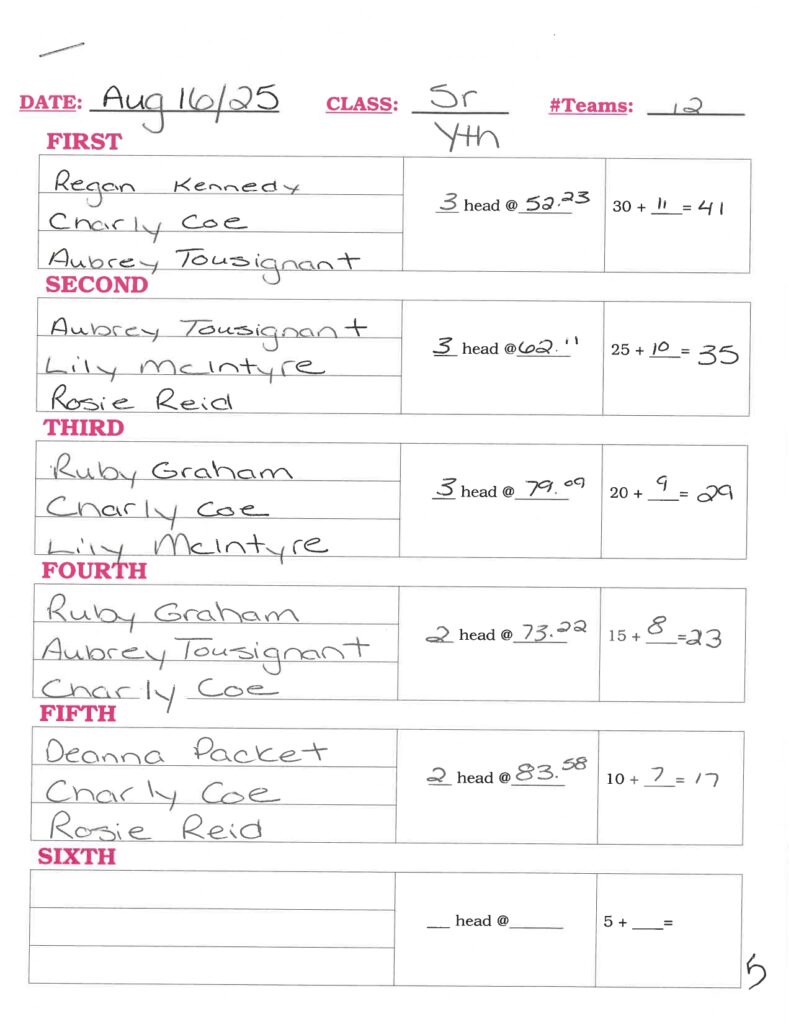 DATE: Aug 16/25 CLASS: Sr Yth #Teams: 12
FIRST
Regan Kennedy
Charly Coe
Aubrey Tousignant
3 head @ 52.23
30 + 11 = 41
SECOND
Aubrey Tousignant
Lily McIntyre
Rosie Reid
3 head @ 62.11
25 + 10 = 35
THIRD
Ruby Graham
Charly Coe
Lily McIntyre
3 head @ 79.09
20 + 9 = 29
FOURTH
Ruby Graham
Aubrey Tousignant
Charly Coe
2 head @ 73.22
15 + 8 = 23
FIFTH
Deanna Packet
Charly Coe
Rosie Reid
2 head @ 83.58
10 + 7 = 17
SIXTH
__ head @______
5 + ____=
5